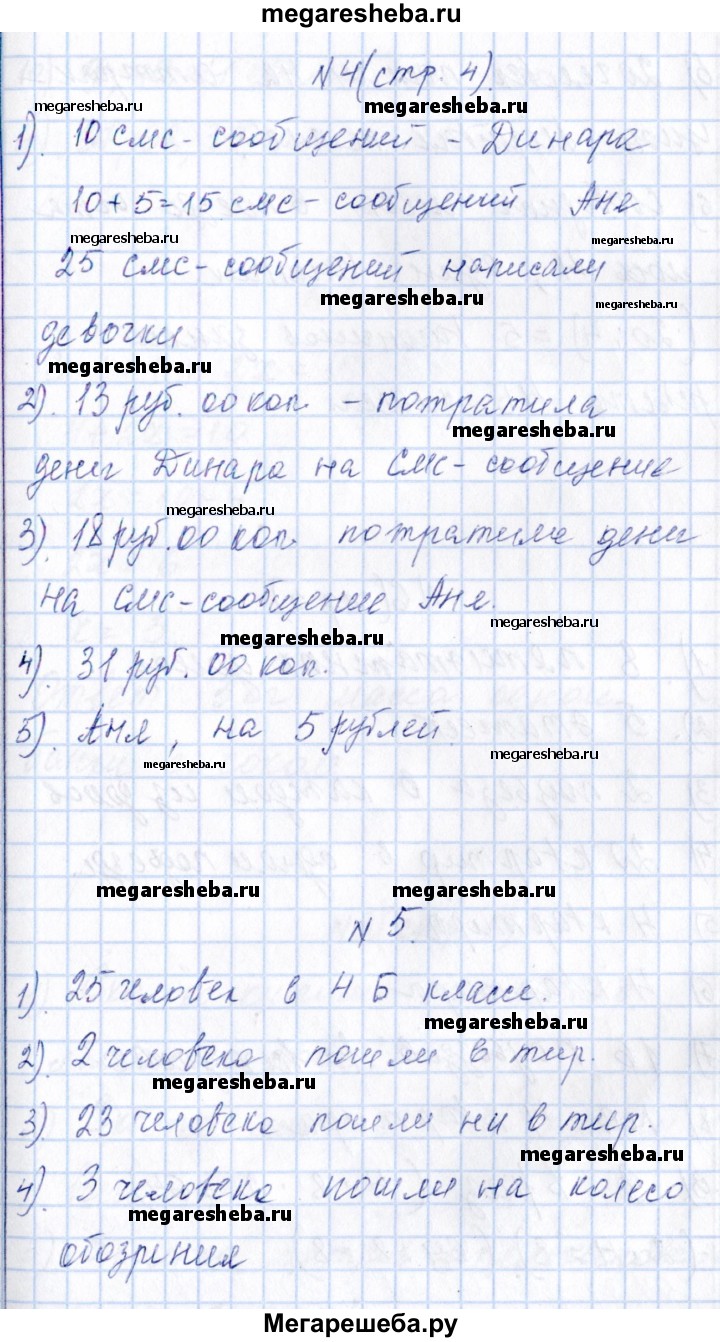 megaresheba.ru
N 4 (стр. 4).
megaresheba.ru megaresheba.ru
1). 10 смс - сообщений - Динара
10 + 5 = 15 смс - сообщений Аня
megaresheba.ru megaresheba.ru
25 смс - сообщений написали
megaresheba.ru megaresheba.ru
девочки
megaresheba.ru
2). 13 руб. 00 коп. - потратила
megaresheba.ru
денег Динара на смс - сообщение
megaresheba.ru
3). 18 руб. 00 коп. потратила денег
на смс - сообщение Аня.
megaresheba.ru megaresheba.ru
4). 31 руб. 00 коп.
5). Аня, на 5 рублей.
megaresheba.ru megaresheba.ru
megaresheba.ru megaresheba.ru
N 5.
1). 25 человек в 4 Б классе.
megaresheba.ru
2). 2 человека пошли в тир.
megaresheba.ru
3). 23 человека пошли ни в тир.
megaresheba.ru
4). 3 человека пошли на колесо
megaresheba.ru
обозрения
Мегарешеба.ру